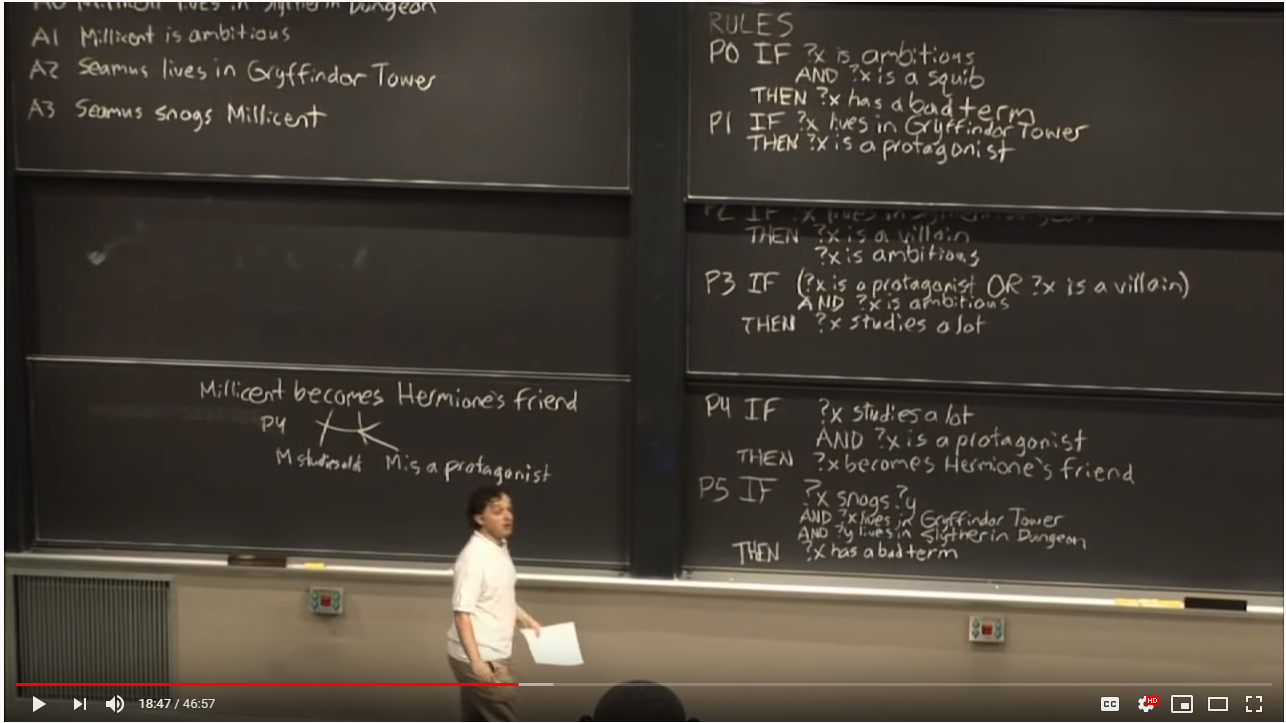 A0 Millicent lives in Slytherin Dungeon
A1 Millicent is ambitious
A2 Seamus lives in Gryffindor Tower
A3 Seamus snogs Millicent
Millicent becomes Hermione's friend
P4
M studies alot M is a protagonist
RULES
P0 IF ?x is ambitious
AND ?x is a squib
THEN ?x has a bad term
P1 IF ?x lives in Gryffindor Tower
THEN ?x is a protagonist
P2 IF ?x lives in Slytherin Dungeon
THEN ?x is a villain
?x is ambitious
P3 IF (?x is a protagonist OR ?x is a villain)
AND ?x is ambitious
THEN ?x studies a lot
P4 IF ?x studies a lot
AND ?x is a protagonist
THEN ?x becomes Hermione's friend
P5 IF ?x snogs ?y
AND ?x lives in Gryffindor Tower
AND ?y lives in Slytherin Dungeon
THEN ?x has a bad term
18:47 / 46:57
CC
HD